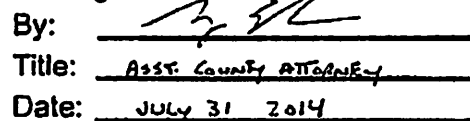 By:
Title: ASST. COUNTY ATTORNEY
Date: JULY 31 2014